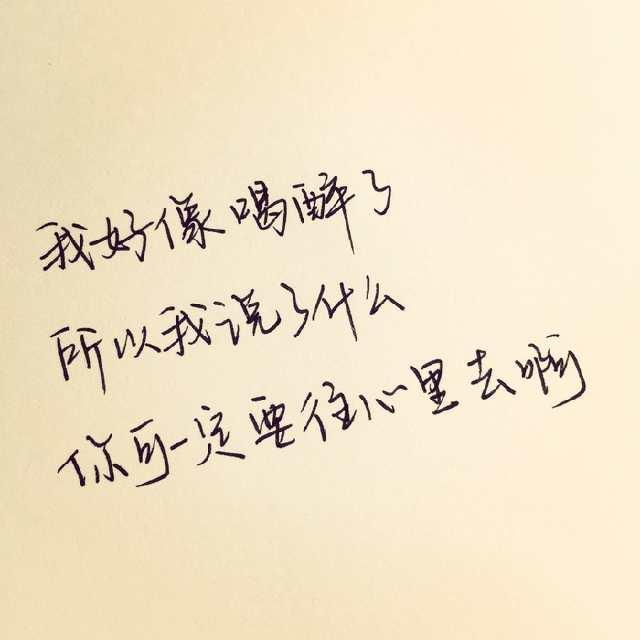 我好像喝醉了
所以我说了什么
你可一定要往心里去啊